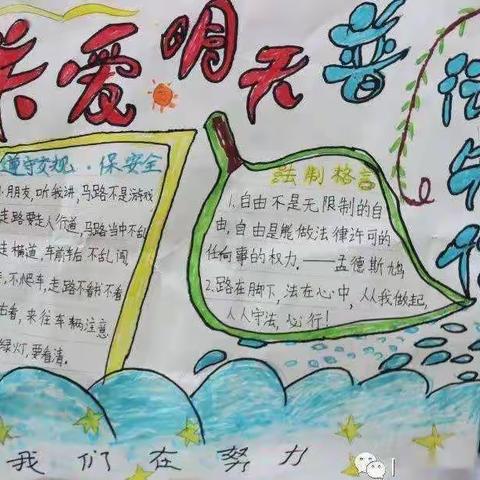 关爱明天普法先行
遵守交规·保安全
小朋友,听我讲,马路不是游戏
走路要走人行道,马路当中不乱
走横道,车前车后不乱闯
不爬车,走路不看
右看,来往车辆注意
绿灯,要看清.
法制格言
1.自由不是无限制的自
由,自由是能做法律许可的
任何事的权力.——孟德斯鸠
2.路在脚下,法在心中,从我做起,
人人守法,必行!
我们在努力